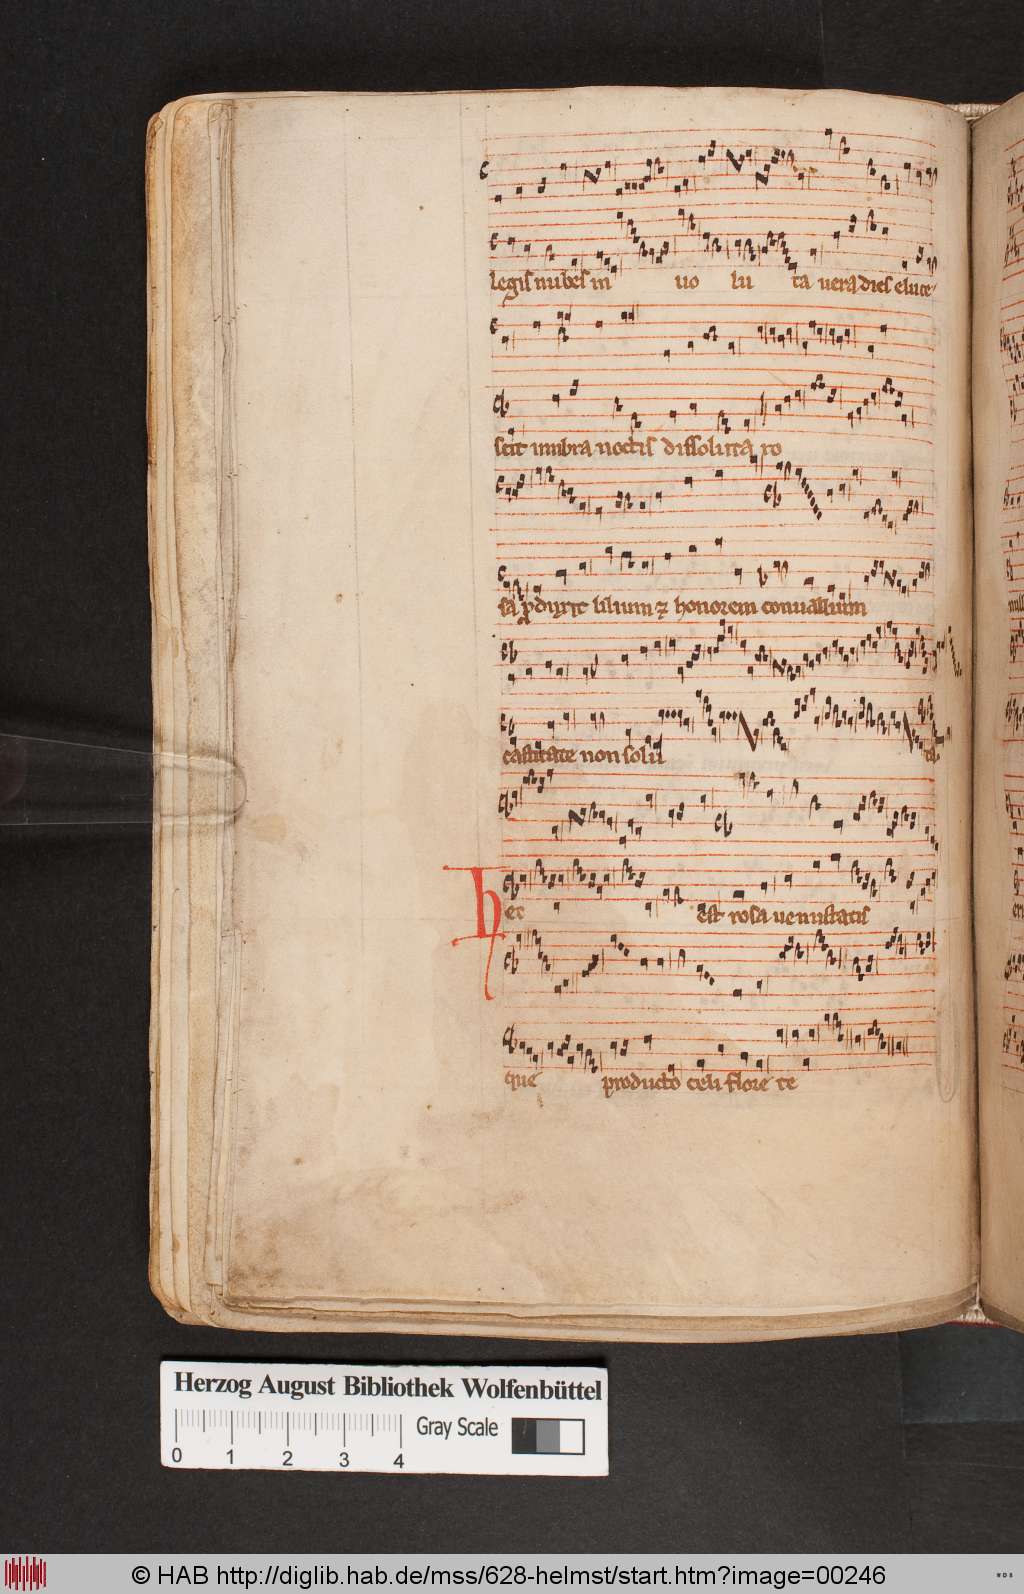 legis nubes in uo lu ta uera dies eluce
scit umbra noctis dissoluta ro
sa produxit lilium ⁊ honorem conuallium
castitate non solu ta
Hec est rosa uenustatis
que producto celi flore te
Herzog August Bibliothek Wolfenbüttel
Gray Scale
0 1 2 3 4
© HAB http://diglib.hab.de/mss/628-helmst/start.htm?image=00246